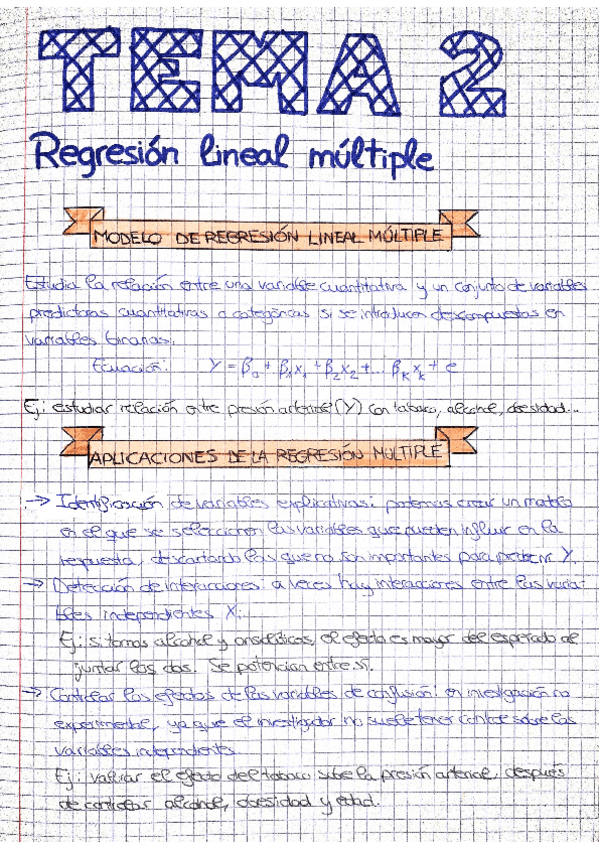 TEMA 2
Regresión lineal múltiple
MODELO DE REGRESIÓN LINEAL MÚLTIPLE
Estudia la relación entre una variable cuantitativa y un conjunto de variables
predictoras cuantitativas o categóricas si se introducen descompuestas en
variables binarias.
Ecuación: Y = β₀ + β₁x₁ + β₂x₂ + ... βₖxₖ + e
Ej: estudiar relación entre presión arterial (Y) con tabaco, alcohol, obesidad...
APLICACIONES DE LA REGRESIÓN MÚLTIPLE
→ Identificación de variables explicativas: podemos crear un modelo
en el que se seleccionen las variables que pueden influir en la
respuesta, descartando las que no son importantes para predecir Y.
→ Detección de interacciones: a veces hay interacciones entre las varia-
bles independientes Xi.
Ej: si tomas alcohol y ansiolíticos, el efecto es mayor del esperado al
juntar los dos. Se potencian entre sí.
→ Controlar los efectos de las variables de confusión: en investigación no
experimental, ya que el investigador no suele tener control sobre las
variables independientes
Ej: valorar el efecto del tabaco sobre la presión arterial, después
de controlar alcohol, obesidad y edad.